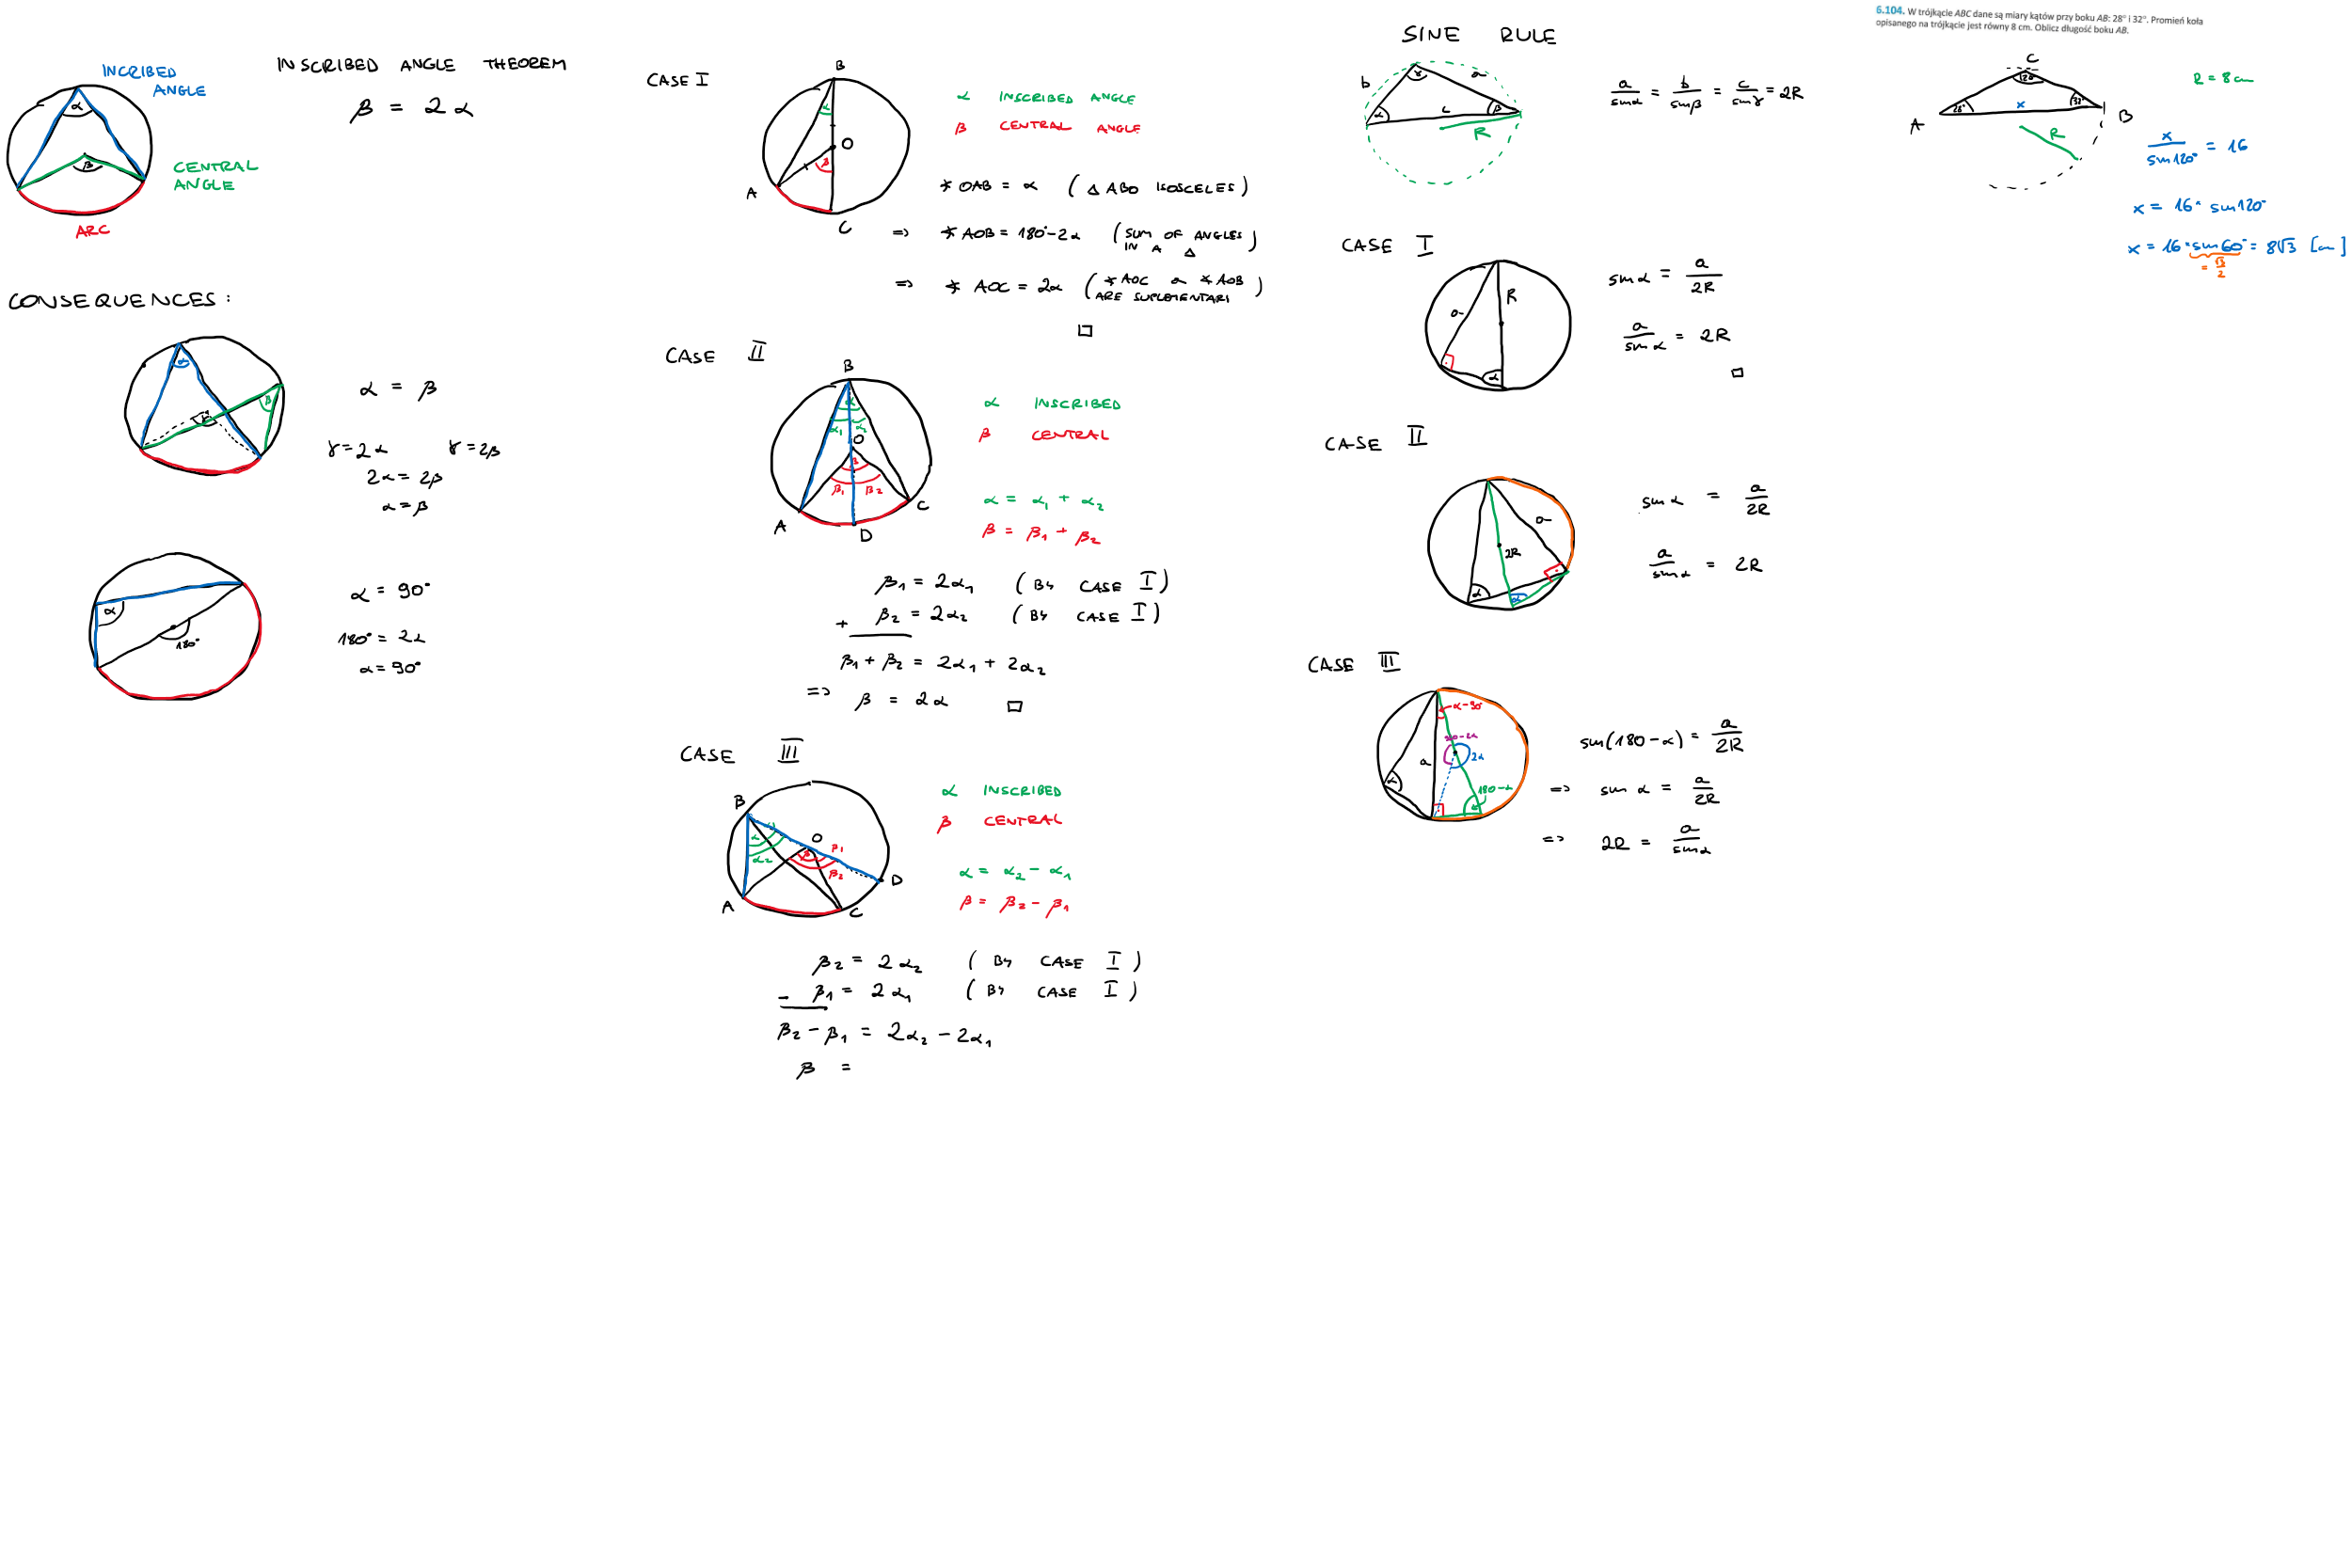 INSCRIBED ANGLE THEOREM
β = 2α
INCRIBED
ANGLE
α
β
CENTRAL
ANGLE
ARC
CONSEQUENCES:
α
β
γ
α = β
γ=2α γ=2β
2α=2β
α=β
α
180°
α = 90°
180° = 2α
α=90°
CASE I
B
α
O
β
A
C
α INSCRIBED ANGLE
β CENTRAL ANGLE
∢ OAB = α (Δ ABO ISOSCELES)
=> ∢ AOB = 180°-2α (SUM OF ANGLES
IN A Δ)
=> ∢ AOC = 2α (∢ AOC a ∢ AOB
ARE SUPLEMENTARI)
□
CASE II
B
α
α₁ α₂
O
β
β₁ β₂
A
D
C
α INSCRIBED
β CENTRAL
α = α₁ + α₂
β = β₁ + β₂
β₁ = 2α₁ (By CASE I)
+ β₂ = 2α₂ (By CASE I)
β₁ + β₂ = 2α₁ + 2α₂
=> β = 2α □
CASE III
B
α
α₂
O
β
β₁
β₂
D
A
C
α INSCRIBED
β CENTRAL
α = α₂ - α₁
β = β₂ - β₁
β₂ = 2α₂ (By CASE I)
- β₁ = 2α₁ (By CASE I)
β₂ - β₁ = 2α₂ - 2α₁
β =
SINE RULE
b
γ
a
α
c
β
R
a/sinα = b/sinβ = c/sinγ = 2R
CASE I
R
a
α
sinα = a/2R
a/sinα = 2R
□
CASE II
a
2R
α
α
sinα = a/2R
a/sinα = 2R
CASE III
α-90°
2α
a
α
180-α
sin(180-α) = a/2R
=> sinα = a/2R
=> 2R = a/sinα
6.104. W trójkącie ABC dane są miary kątów przy boku AB: 28° i 32°. Promień koła
opisanego na trójkącie jest równy 8 cm. Oblicz długość boku AB.
C
120°
28°
x
32°
A
B
R
R = 8cm
x/sin120° = 16
x = 16·sin120°
x = 16·sin60° = 8√3 [cm]
= √3/2